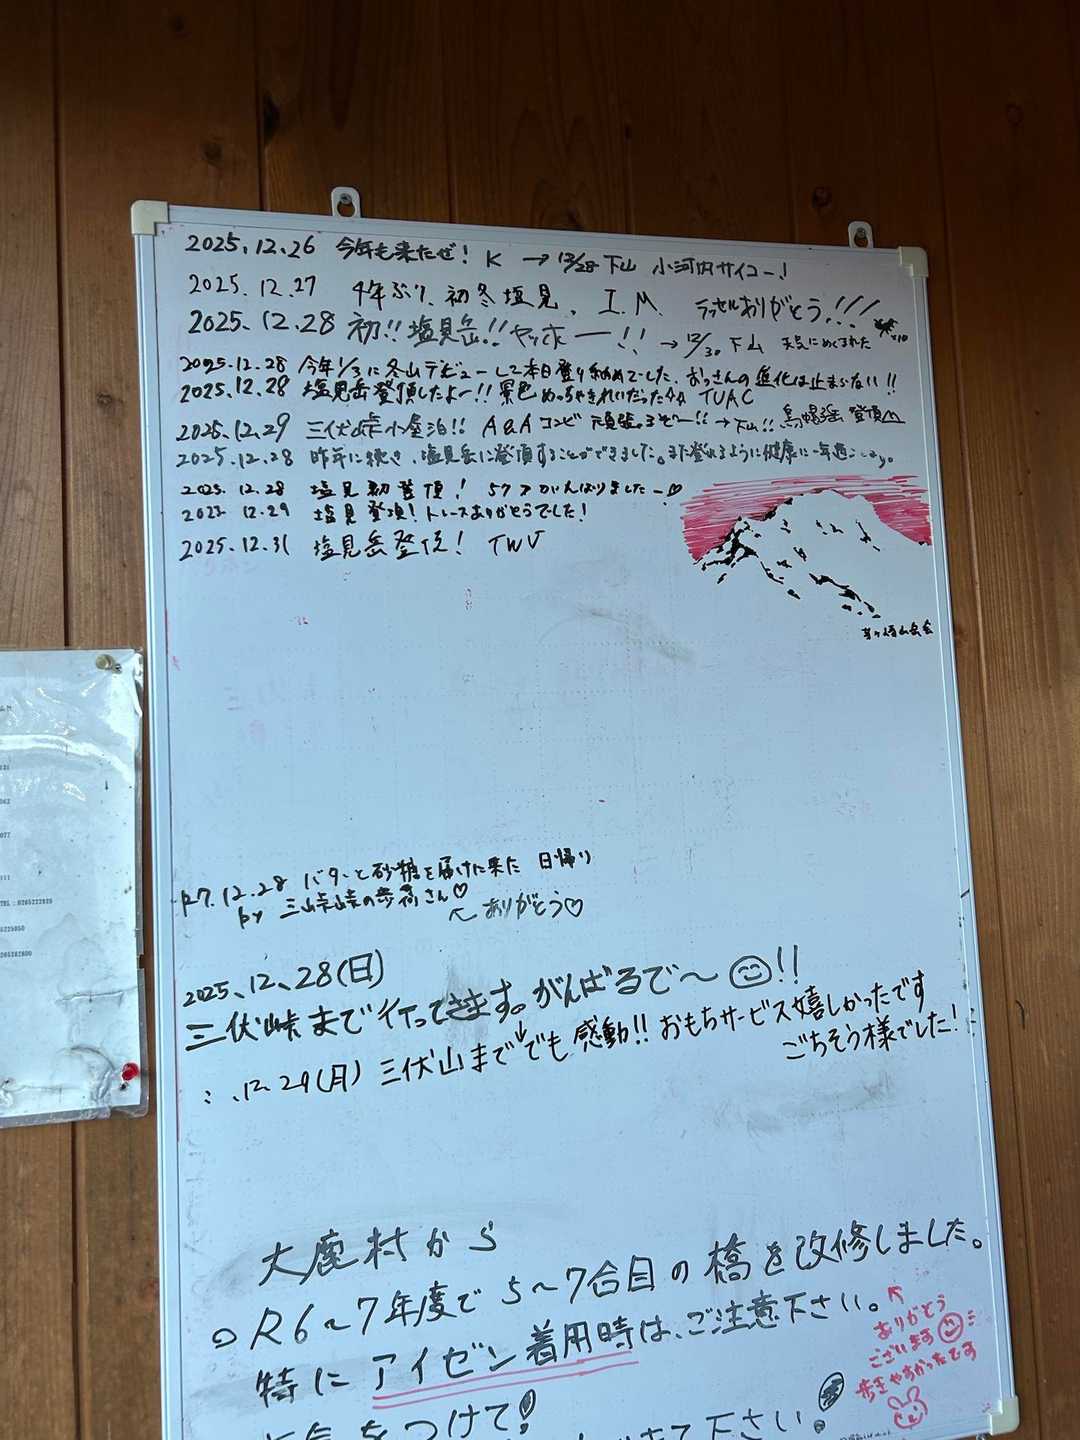 2025.12.26 今年も来たぜ! K → 12/28 下山 小河内サイコー!
2025.12.27 4年ぶり、初冬塩見。 I.M. ラッセルありがとう!!!
2025.12.28 初!!塩見岳!!ヤッホー!! → 12/30 下山 天気にめぐまれた
2025.12.28 今年1/3に冬山デビューして本日登り納めでした。おっさんの進化は止まらない!!
2025.12.28 塩見岳登頂したよー!!景色めっちゃきれいだった☆☆ TUAC
2025.12.29 三伏峠小屋泊!! A&Aコンビ 頑張るぞ〜!! → 下山!! 烏帽子岳 登頂
2025.12.28 昨年に続き、塩見岳に登頂することができました。また登れるように健康に一年過ごします。
2025.12.28 塩見初登頂! がんばりましたー♡
12.29 塩見登頂!トレースありがとうでした!
2025.12.31 塩見岳登頂! TWV
山岳会
R7.12.28 バターと砂糖を届けに来た 日帰り
by 三伏峠の歩荷さん♡
↖ ありがとう♡
2025.12.28(日)
三伏峠まで行ってきます。がんばるで〜☺!!
〃.12.29(月) 三伏山まで↓でも感動!! おもちサービス嬉しかったです
ごちそう様でした!
大鹿村から
○R6〜7年度で5〜7合目の橋を改修しました。
特にアイゼン着用時は、ご注意下さい。
↖ ありがとう
ございます☺
歩きやすかったです
気をつけて!
て下さい。